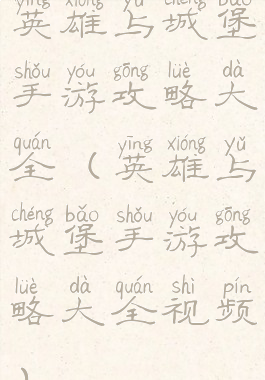 yīng xióng yǔ chéng bǎo
英雄与城堡
shǒu yóu gōng lüè dà
手游攻略大
quán yīng xióng yǔ
全（英雄与
chéng bǎo shǒu yóu gōng
城堡手游攻
lüè dà quán shì pín
略大全视频
）